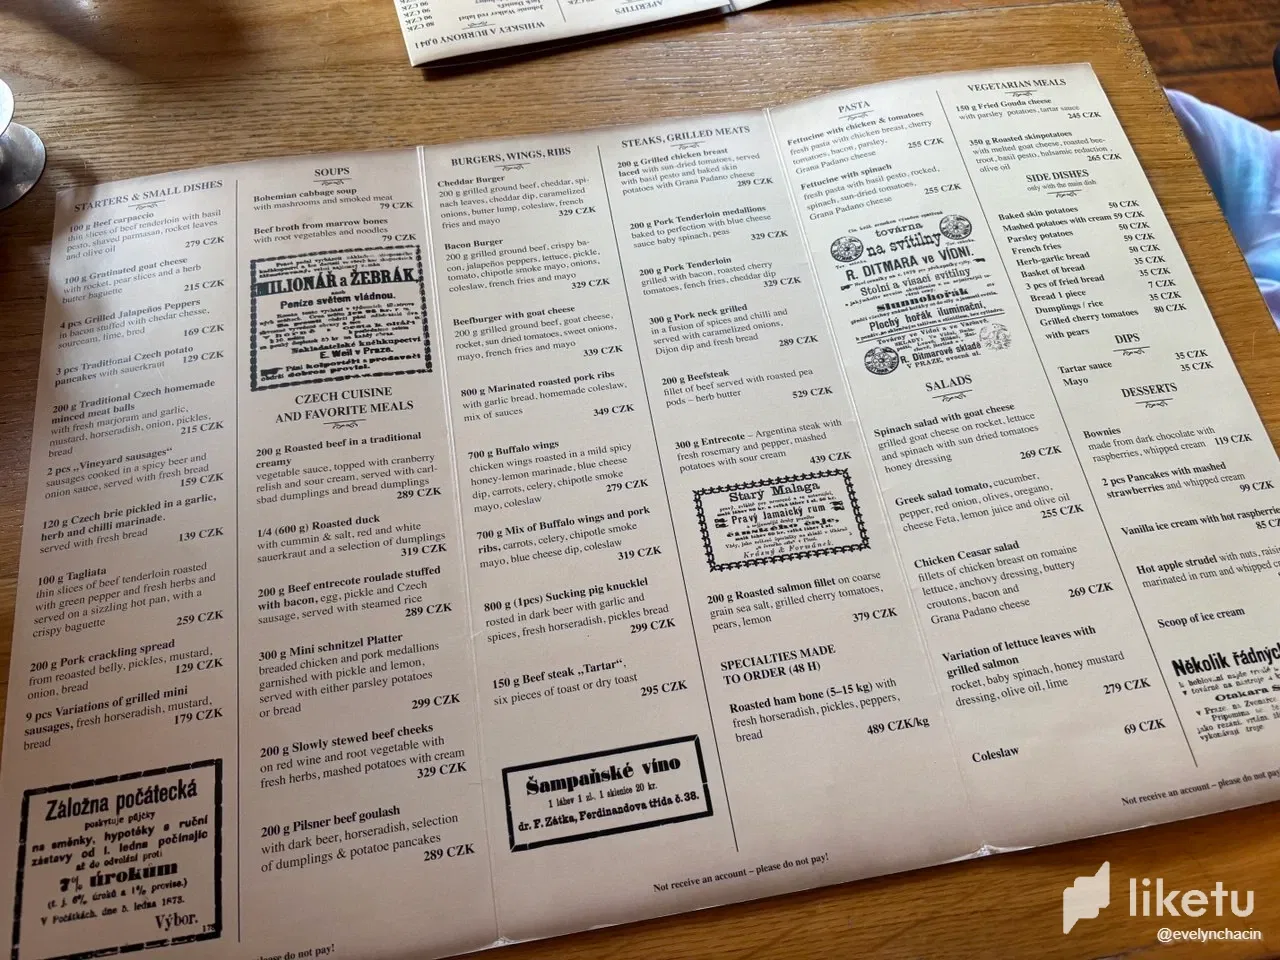 WHISKEY A BURBONY 0,04 l
Johnnie Walker red label
Jack Daniel's
80 CZK
90 CZK
90 CZK
APERITIFS
STARTERS & SMALL DISHES
100 g Beef carpaccio
thin slices of beef tenderloin with basil
pesto, shaved parmasan, rocket leaves
and olive oil
279 CZK
100 g Gratinated goat cheese
with rocket, pear slices and a herb
butter baguette
215 CZK
4 pcs Grilled Jalapeños Peppers
in bacon stuffed with chedar cheese,
sourceam, lime, bred
169 CZK
3 pcs Traditional Czech potato
pancakes with sauerkraut
129 CZK
200 g Traditional Czech homemade
minced meat balls
with fresh marjoram and garlic,
mustard, horseradish, onion, pickles,
bread
215 CZK
2 pcs „Vineyard sausages"
sausages cooked in a spicy beer and
onion sauce, served with fresh bread
159 CZK
120 g Czech brie pickled in a garlic,
herb and chilli marinade.
served with fresh bread
139 CZK
100 g Tagliata
thin slices of beef tenderloin roasted
with green pepper and fresh herbs and
served on a sizzling hot pan, with a
crispy baguette
259 CZK
200 g Pork crackling spread
from reoasted belly, pickles, mustard,
onion, bread
129 CZK
9 pcs Variations of grilled mini
sausages, fresh horseradish, mustard,
bread
179 CZK
Záložna počátecká
poskytuje půjčky
na směnky, hypotéky a ruční
zástavy od 1. ledna počínajíc
až do odvolání proti
7% úrokům
(t. j. 6% úroků a 1% provise.)
V Počátkách, dne 5. ledna 1873.
Výbor.
SOUPS
Bohemian cabbage soup
with mashrooms and smoked meat
79 CZK
Beef broth from marrow bones
with root vegetables and noodles
79 CZK
MILIONÁŘ a ŽEBRÁK,
Peníze světem vládnou.
Nakladatelské kněhkupectví
E. Weil v Praze.
Pilní kolportéři a prodavači
dobrou provisi.
CZECH CUISINE
AND FAVORITE MEALS
200 g Roasted beef in a traditional
creamy
vegetable sauce, topped with cranberry
relish and sour cream, served with carl-
sbad dumplings and bread dumplings
289 CZK
1/4 (600 g) Roasted duck
with cummin & salt, red and white
sauerkraut and a selection of dumplings
319 CZK
200 g Beef entrecote roulade stuffed
with bacon, egg, pickle and Czech
sausage, served with steamed rice
289 CZK
300 g Mini schnitzel Platter
breaded chicken and pork medallions
garnished with pickle and lemon,
served with either parsley potatoes
or bread
299 CZK
200 g Slowly stewed beef cheeks
on red wine and root vegetable with
fresh herbs, mashed potatoes with cream
329 CZK
200 g Pilsner beef goulash
with dark beer, horseradish, selection
of dumplings & potatoe pancakes
289 CZK
do not pay!
BURGERS, WINGS, RIBS
Cheddar Burger
200 g grilled ground beef, cheddar, spi-
nach leaves, cheddar dip, caramelized
onions, butter lump, coleslaw, french
fries and mayo
329 CZK
Bacon Burger
200 g grilled ground beef, crispy ba-
con, jalapeños peppers, lettuce, pickle,
tomato, chipotle smoke mayo, onions,
coleslaw, french fries and mayo
329 CZK
Beefburger with goat cheese
200 g grilled ground beef, goat cheese,
rocket, sun dried tomatoes, sweet onions,
mayo, french fries and mayo
339 CZK
800 g Marinated roasted pork ribs
with garlic bread, homemade coleslaw,
mix of sauces
349 CZK
700 g Buffalo wings
chicken wings roasted in a mild spicy
honey-lemon marinade, blue cheese
dip, carrots, celery, chipotle smoke
mayo, coleslaw
279 CZK
700 g Mix of Buffalo wings and pork
ribs, carrots, celery, chipotle smoke
mayo, blue cheese dip, coleslaw
319 CZK
800 g (1pcs) Sucking pig knucklel
rosted in dark beer with garlic and
spices, fresh horseradish, pickles bread
299 CZK
150 g Beef steak „Tartar",
six pieces of toast or dry toast
295 CZK
Šampaňské víno
1 láhev 1 zl., 1 sklenice 20 kr.
dr. F. Zátka, Ferdinandova třída č. 38.
STEAKS, GRILLED MEATS
200 g Grilled chicken breast
laced with sun-dried tomatoes, served
with basil pesto and baked skin
potatoes with Grana Padano cheese
289 CZK
200 g Pork Tenderloin medallions
grilled to perfection with blue cheese
sauce baby spinach, peas
329 CZK
200 g Pork Tenderloin
grilled with bacon, roasted cherry
tomatoes, fench fries, cheddar dip
329 CZK
300 g Pork neck grilled
in a fusion of spices and chilli and
served with caramelized onions,
Dijon dip and fresh bread
289 CZK
200 g Beefsteak
fillet of beef served with roasted pea
pods – herb butter
529 CZK
300 g Entrecote – Argentina steak with
fresh rosemary and pepper, mashed
potatoes with sour cream
439 CZK
Starý Malaga
Pravý Jamaický rum
čínského čaje,
Krásný & Formánek.
200 g Roasted salmon fillet on coarse
grain sea salt, grilled cherry tomatoes,
pears, lemon
379 CZK
SPECIALTIES MADE
TO ORDER (48 H)
Roasted ham bone (5–15 kg) with
fresh horseradish, pickles, peppers,
bread
489 CZK/kg
Not receive an account – please do not pay!
PASTA
Fettucine with chicken & tomatoes
fresh pasta with chicken breast, cherry
tomatoes, bacon, parsley,
Grana Padano cheese
255 CZK
Fettucine with spinach
fresh pasta with basil pesto, rocked,
spinach, sun-dried tomatoes,
Grana Padano cheese
255 CZK
továrna
na svítilny
R. DITMARA ve VÍDNI.
Stolní a visací svítilny
Slunnohořák
Plochý hořák iluminační,
Továrny ve Vídni a ve Varšavě.
R. Ditmarově skladě
v PRAZE,
SALADS
Spinach salad with goat cheese
grilled goat cheese on rocket, lettuce
and spinach with sun dried tomatoes
honey dressing
269 CZK
Greek salad tomato, cucumber,
pepper, red onion, olives, oregano,
cheese Feta, lemon juice and olive oil
255 CZK
Chicken Ceasar salad
fillets of chicken breast on romaine
lettuce, anchovy dressing, buttery
croutons, bacon and
Grana Padano cheese
269 CZK
Variation of lettuce leaves with
grilled salmon
rocket, baby spinach, honey mustard
dressing, olive oil, lime
279 CZK
Coleslaw
69 CZK
VEGETARIAN MEALS
150 g Fried Gouda cheese
with parsley potatoes, tartar sauce
245 CZK
350 g Roasted skinpotatoes
with melted goat cheese, roasted beet-
root, basil pesto, balsamic reduction ,
olive oil
265 CZK
SIDE DISHES
only with the main dish
Baked skin potatoes 50 CZK
Mashed potatoes with cream 59 CZK
Parsley potatoes 50 CZK
French fries 59 CZK
Herb-garlic bread 50 CZK
Basket of bread 35 CZK
3 pcs of fried bread 35 CZK
Bread 1 piece 7 CZK
Dumplings / rice 35 CZK
Grilled cherry tomatoes 80 CZK
with pears
DIPS
Tartar sauce 35 CZK
Mayo 35 CZK
DESSERTS
Bownies
made from dark chocolate with
raspberries, whipped cream 119 CZK
2 pcs Pancakes with mashed
strawberries and whipped cream
99 CZK
Vanilla ice cream with hot raspberries
85
Hot apple strudel with nuts, raisins
marinated in rum and whipped
Scoop of ice cream
Několik řádných
Otakara
Not receive an account – please do not pay!
liketu
@evelynchacin